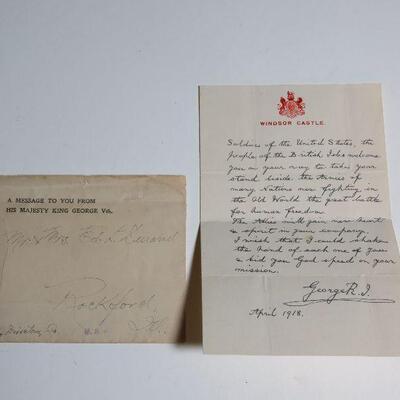 A MESSAGE TO YOU FROM
HIS MAJESTY KING GEORGE Vth.
Mrs
Rockford
Ill.
WINDSOR CASTLE.
Soldiers of the United States, the
people of the British Isles welcome
you on your way to take your
stand beside the Armies of
many Nations now fighting in
the Old World the great battle
for human freedom.
The Allies will gain new heart
& spirit in your company.
I wish that I could shake
the hand of each one of you
& bid you God speed on your
mission.
George R.I.
April 1918.